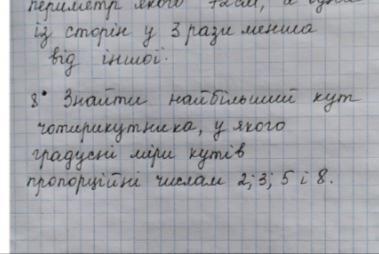 периметр якого 72см, а одна
із сторін у 3 рази менша
від іншої.
8• Знайти найбільший кут
чотирикутника, у якого
градусні міри кутів
пропорційні числам 2; 3; 5 і 8.